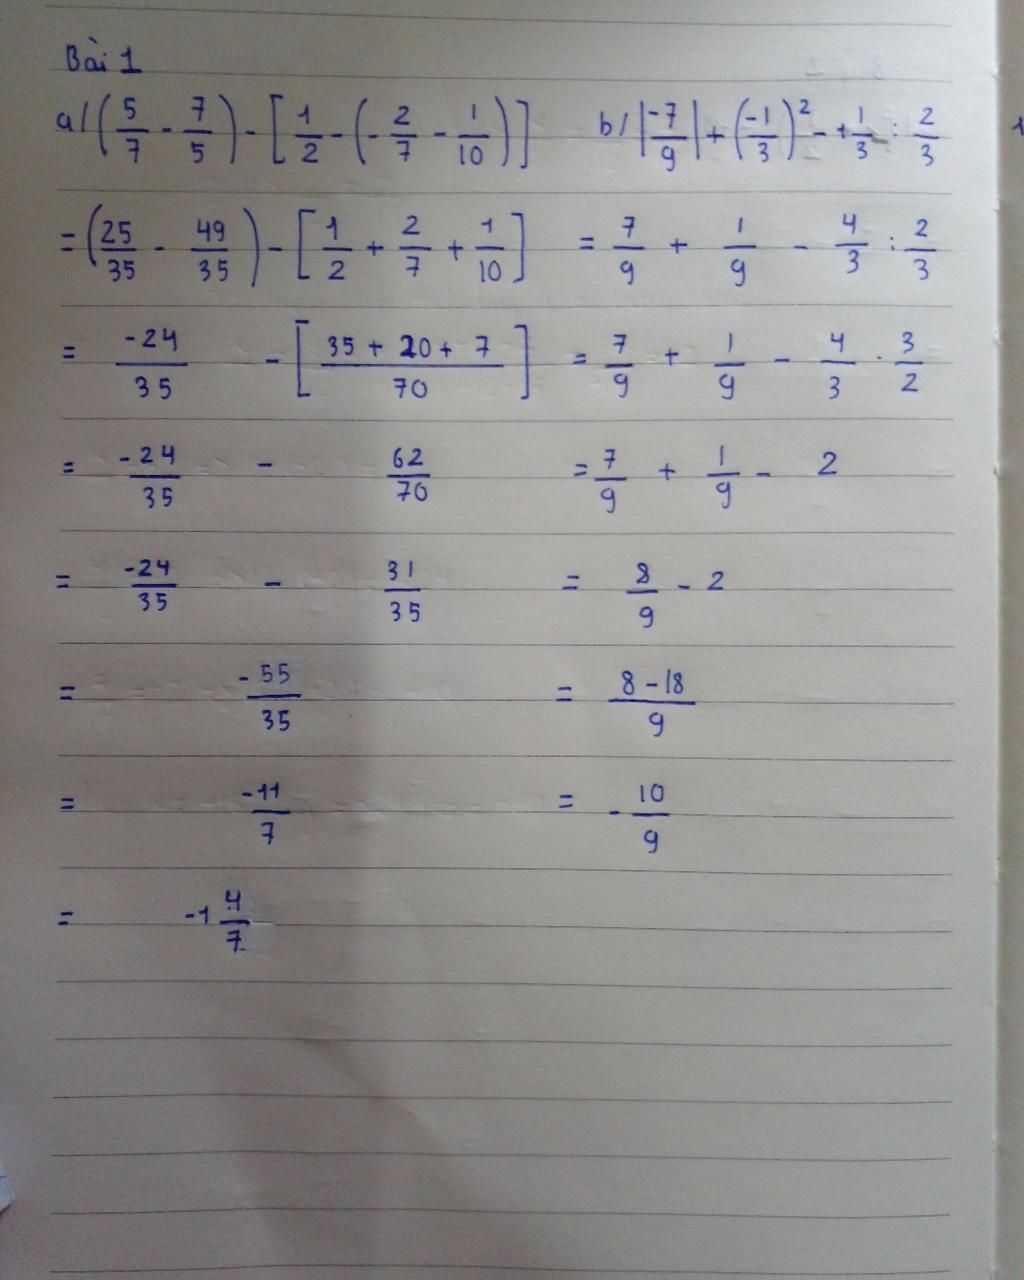 Bài 1
a/ (5/7 - 7/5) - [1/2 - (-2/7 - 1/10)]
= (25/35 - 49/35) - [1/2 + 2/7 + 1/10]
= -24/35 - [(35 + 20 + 7)/70]
= -24/35 - 62/70
= -24/35 - 31/35
= -55/35
= -11/7
= -1 4/7
b/ |-7/9| + (-1/3)² - +1/3 : 2/3
= 7/9 + 1/9 - 4/3 : 2/3
= 7/9 + 1/9 - 4/3 . 3/2
= 7/9 + 1/9 - 2
= 8/9 - 2
= (8 - 18)/9
= -10/9